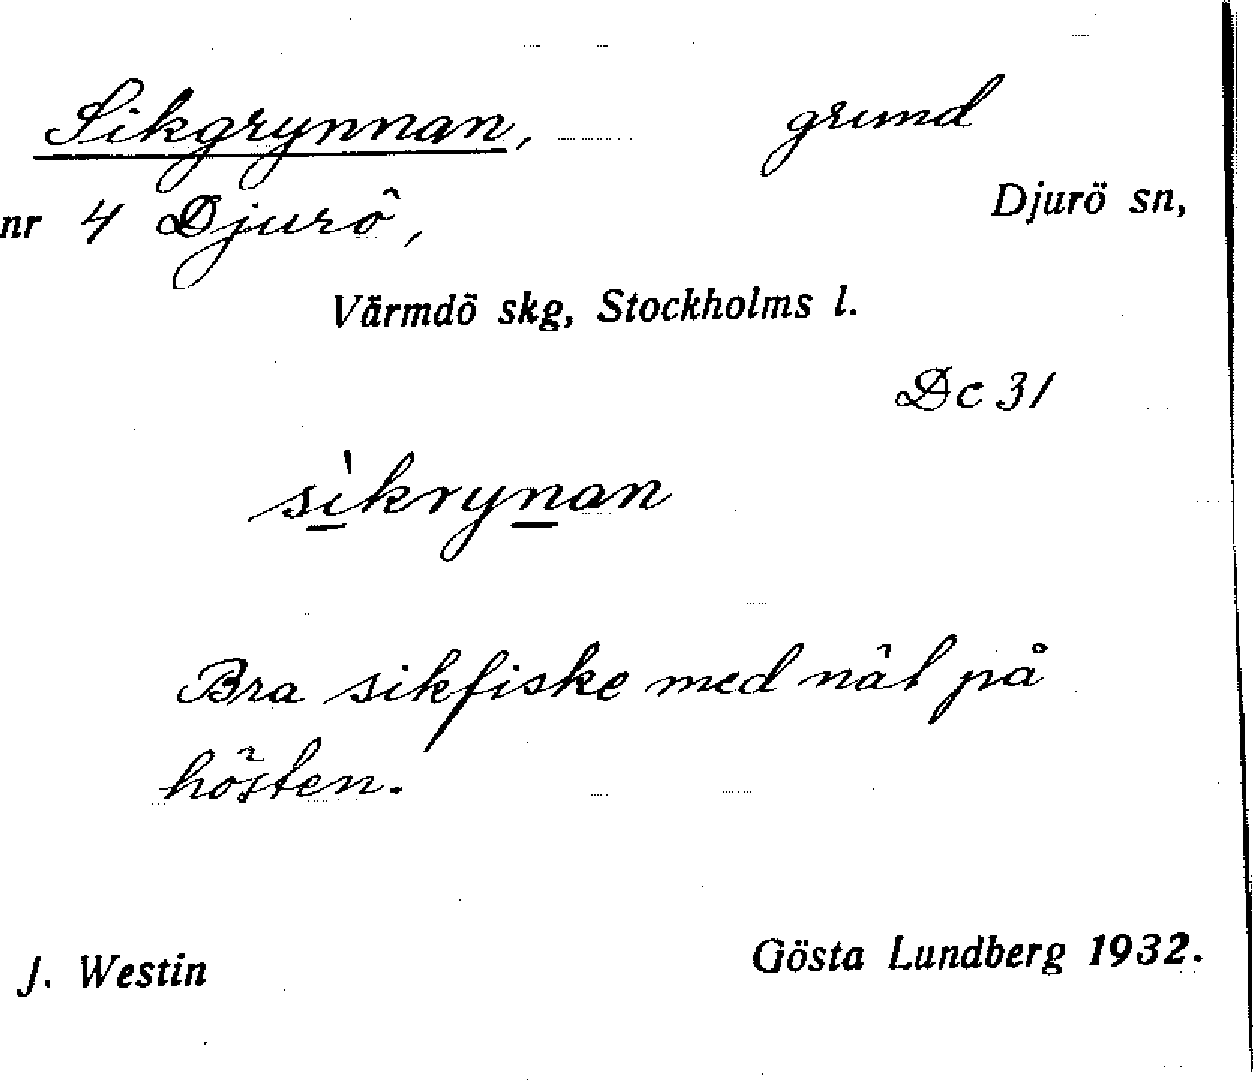 Sikgrynnan, grund
nr 4 Djurö, Djurö sn,
Värmdö skg, Stockholms l.
Dc 31
sikrynan
Bra sikfiske med nät på
hösten.
J. Westin Gösta Lundberg 1932.